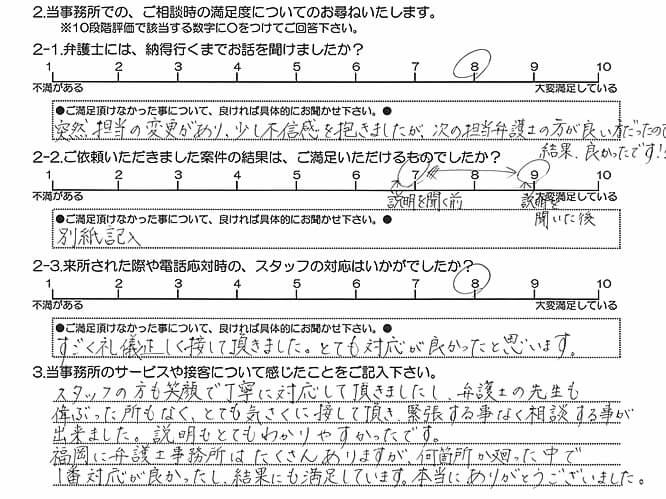 2.当事務所での、ご相談時の満足度についてのお尋ねいたします。
※10段階評価で該当する数字に○をつけてご回答下さい。
2-1.弁護士には、納得行くまでお話を聞けましたか?
1 2 3 4 5 6 7 8 9 10
不満がある 大変満足している
●ご満足頂けなかった事について、良ければ具体的にお聞かせ下さい。●
突然、担当の変更があり、少し不信感を抱きましたが、次の担当弁護士の方が良い方だったので
結果、良かったです!!
2-2.ご依頼いただきました案件の結果は、ご満足いただけるものでしたか?
1 2 3 4 5 6 7 8 9 10
不満がある 説明を聞く前 説明を 大変満足している
聞いた後
●ご満足頂けなかった事について、良ければ具体的にお聞かせ下さい。●
別紙記入
2-3.来所された際や電話応対時の、スタッフの対応はいかがでしたか?
1 2 3 4 5 6 7 8 9 10
不満がある 大変満足している
●ご満足頂けなかった事について、良ければ具体的にお聞かせ下さい。●
すごく礼儀正しく接して頂きました。とても対応が良かったと思います。
3.当事務所のサービスや接客について感じたことをご記入下さい。
スタッフの方も笑顔で丁寧に対応して頂きましたし、弁護士の先生も
偉ぶった所もなく、とても気さくに接して頂き、緊張する事なく相談する事が
出来ました。説明もとてもわかりやすかったです。
福岡に弁護士事務所はたくさんありますが、何箇所か廻った中で
1番対応が良かったし、結果にも満足しています。本当にありがとうございました。